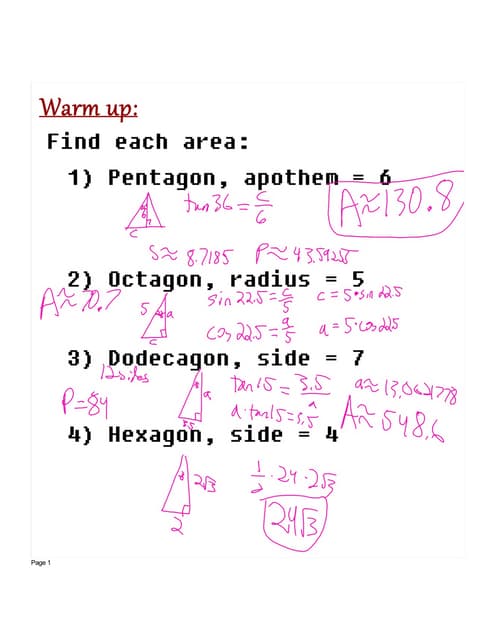 Warm up:
Find each area:
1) Pentagon, apothem = 6
tan 36 = c/6
A≈130.8
6
c
s≈ 8.7185 P≈43.5925
2) Octagon, radius = 5
A≈70.7
5
a
c
sin 22.5 = c/5 c = 5•sin 22.5
cos 22.5 = a/5 a = 5•cos 22.5
3) Dodecagon, side = 7
12 sides
P=84
a
3.5
tan 15 = 3.5/a a≈13.0621778
a•tan 15 = 3.5
A≈548.6
4) Hexagon, side = 4
2√3
2
1/2 • 24 • 2√3
24√3
Page 1